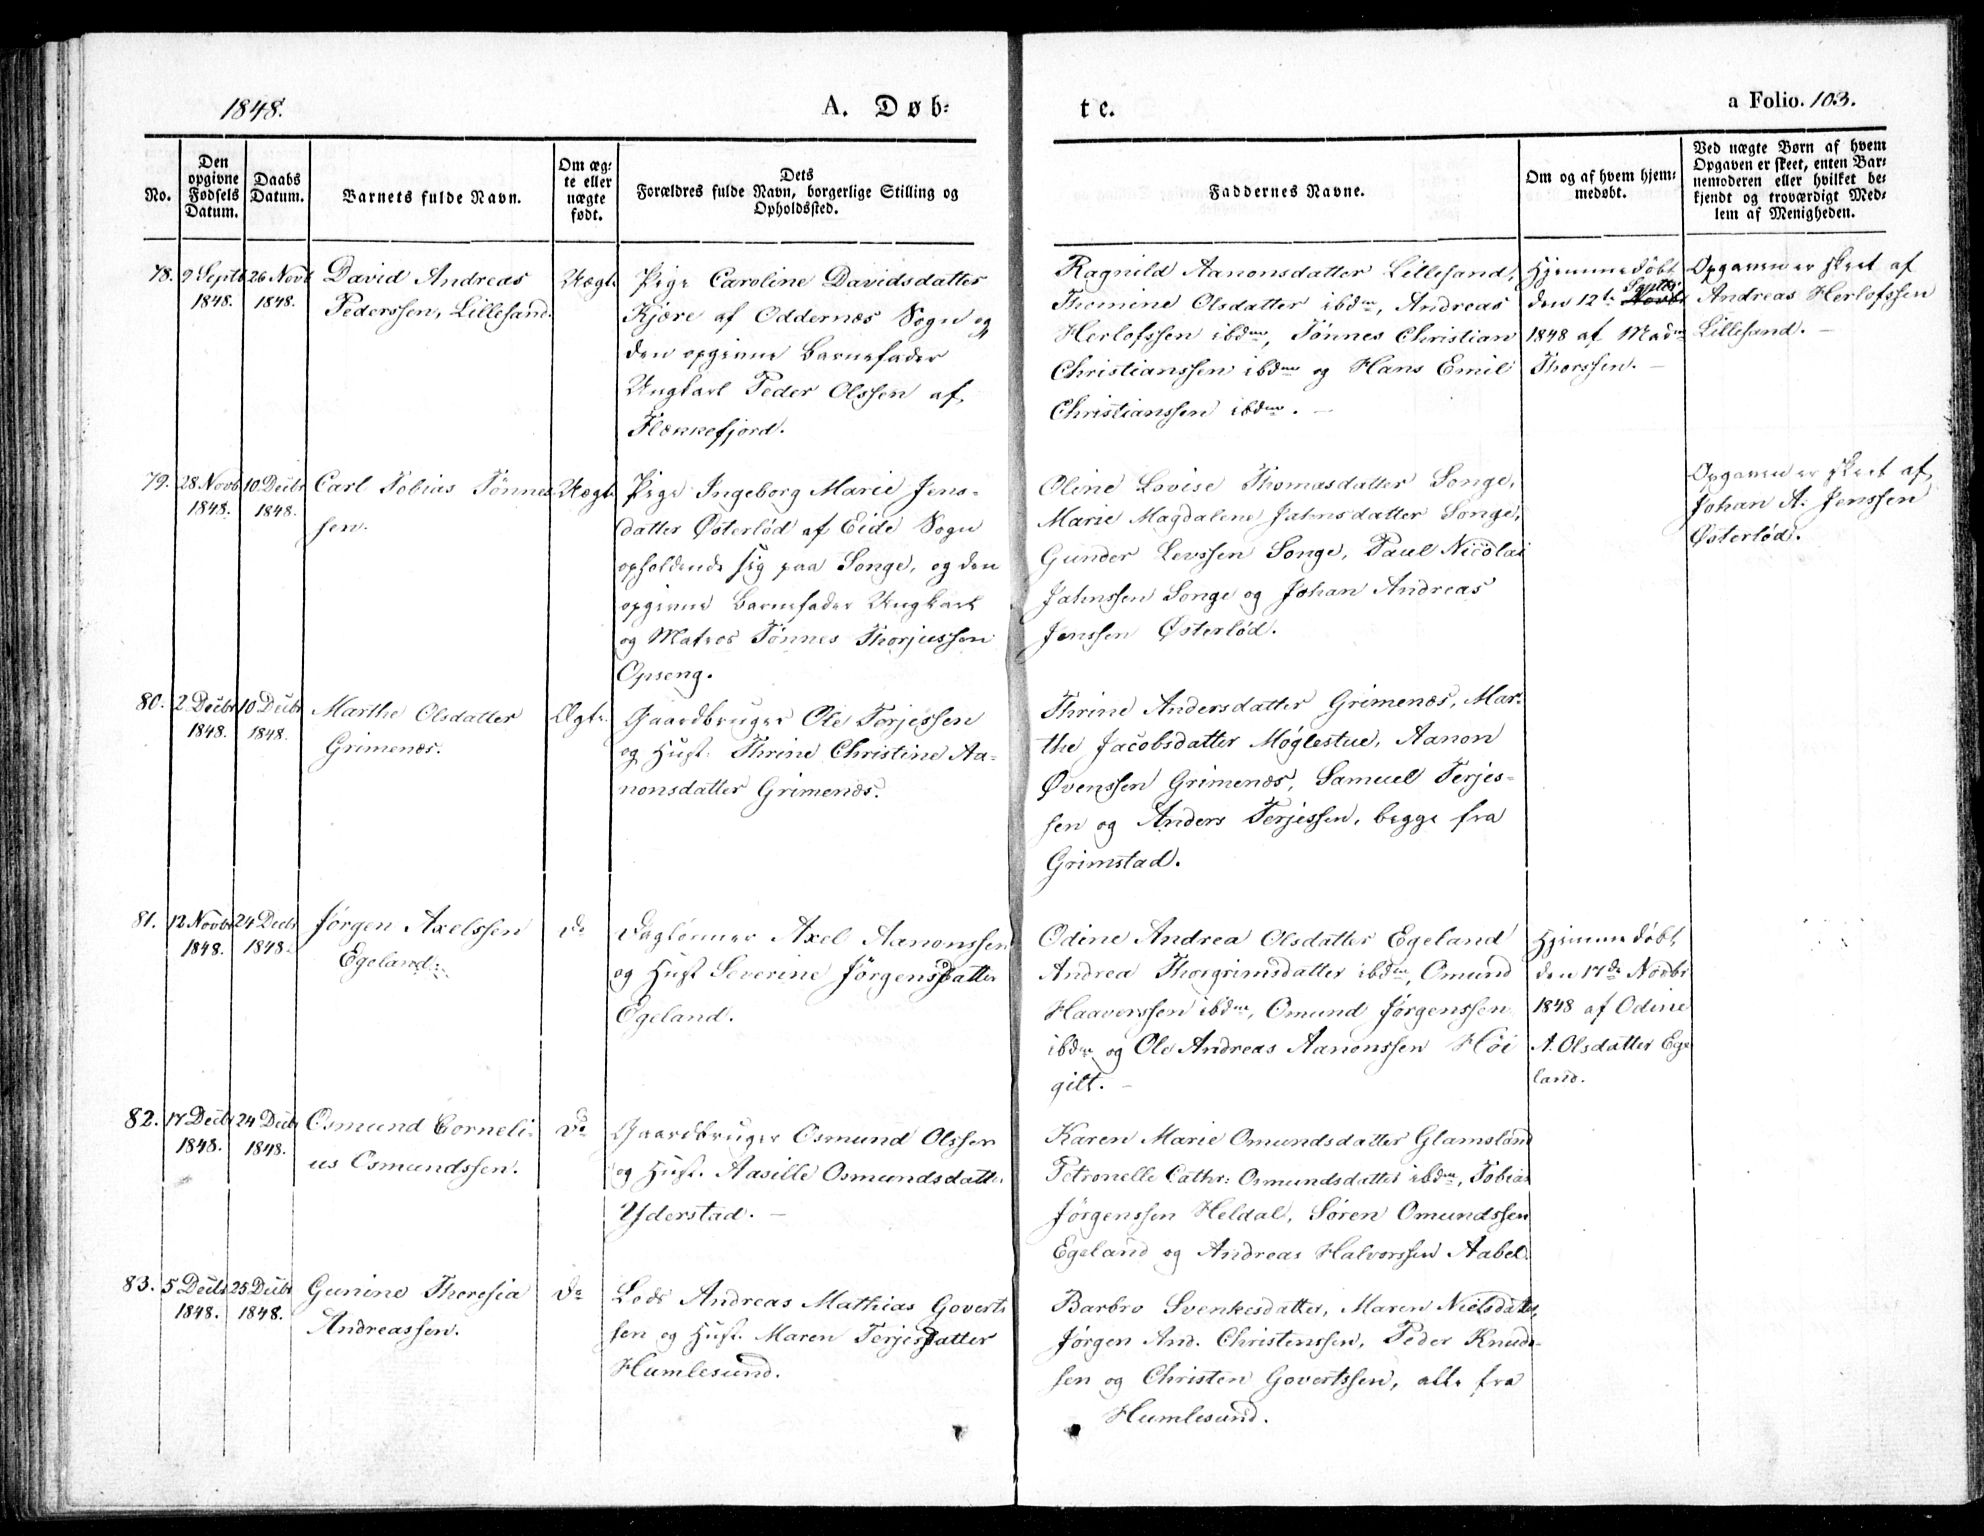 1848. A. Døb= te. a Folio. 103.
No.
Den opgivne Fødsels Datum.
Daabs Datum.
Barnets fulde Navn.
Om æg=te eller uægte født.
Dets Forældres fulde Navn, borgerlige Stilling og Opholdssted.
Faddernes Navne.
Om og af hvem hjem=medøbt.
Ved uægte Børn af hvem Opgaven er skeet, enten Bar=nemoderen eller hvilket be=kjendt og troværdigt Med=lem af Menigheden.
78.
9 Septb
1848.
26 Novb
1848.
David Andreas
Pederssen, Lillesand.
Uægte
Pige Caroline Davidsdatter
Kjære af Oddernæs Sogn og
den opgivne Barnefader
Ungkarl Peder Olssen af
Flekkefjord.
Ragnild Aanonsdatter Lillesand,
Thomine Olsdatter ibdm, Andreas
Herlofssen ibdm, Tønnes Christian
Christianssen ibdm og Hans Emil
Christianssen ibdm. –
Hjemmedøbt
den 12te Septbr Novbr
1848 af Madm
Thorssen. –
Opgaven er skeet af
Andreas Herlofssen
Lillesand. –
79.
28 Novb
1848.
10 Decbr
1848.
Carl Tobias Tønnes
sen.
Uægte
Pige Ingeborg Marie Jens=
datter Østerlød af Eide Sogn
opholdende sig paa Songe, og den
opgivne Barnefader Ungkarl
og Matros Tønnes Thorjussen
Opseng.
Oline Lovise Thomasdatter Songe,
Marie Magdalene Jahnsdatter Songe,
Gunder Levssen Songe, Paul Nicolai
Jahnssen Songe og Johan Andreas
Jenssen Østerlød.
Opgaven er skeet af
Johan A. Jenssen
Østerlød.
80.
2 Decbr
1848.
10 Decbr
1848.
Marthe Olsdatter
Grimenæs.
Ægte
Gaardbruger Ole Terjessen
og Hust. Thrine Christine Aa=
nonsdatter Grimenæs.
Thrine Andersdatter Grimenæs, Mar=
the Jacobsdatter Møglestue, Aanon
Øvenssen Grimenæs, Samuel Terjes=
sen og Anders Terjessen, begge fra
Grimstad.
81.
12 Novbr
1848.
24 Decbr
1848.
Jørgen Axelssen
Egeland.
Do
Daglønner Axel Aanonssen
og Hust Severine Jørgensdatter
Egeland.
Odine Andrea Olsdatter Egeland
Andrea Thorgrimsdatter ibdm, Omund
Haaverssen ibdm, Omund Jørgenssen
ibdm og Ole Andreas Aanonssen Høi
gilt. –
Hjemmedøbt
den 17de Novbr
1848 af Odine
A. Olsdatter Ege
land.
82.
17 Decbr
1848.
24 Decbr
1848.
Osmund Corneli=
us Osmundssen.
Do
Gaardbruger Osmund Olssen
og Hust. Aasille Osmundsdatter
Yderstad. –
Karen Marie Omundsdatter Glamsland
Petronelle Cathr: Osmundsdatter ibdm, Tobias
Jørgenssen Heldal, Søren Omundssen
Egeland og Andreas Halvorssen Aabel.
83.
5 Decbr
1848.
25 Decbr
1848.
Gunine Theresia
Andreassen.
Do
Lods Andreas Mathias Goverts
sen og Hust. Maren Terjesdatter
Humlesund.
Barbro Svenkesdatter, Maren Nielsdatter,
Jørgen And. Christenssen, Peder Knud=
sen og Christen Govertssen, alle fra
Humlesund.